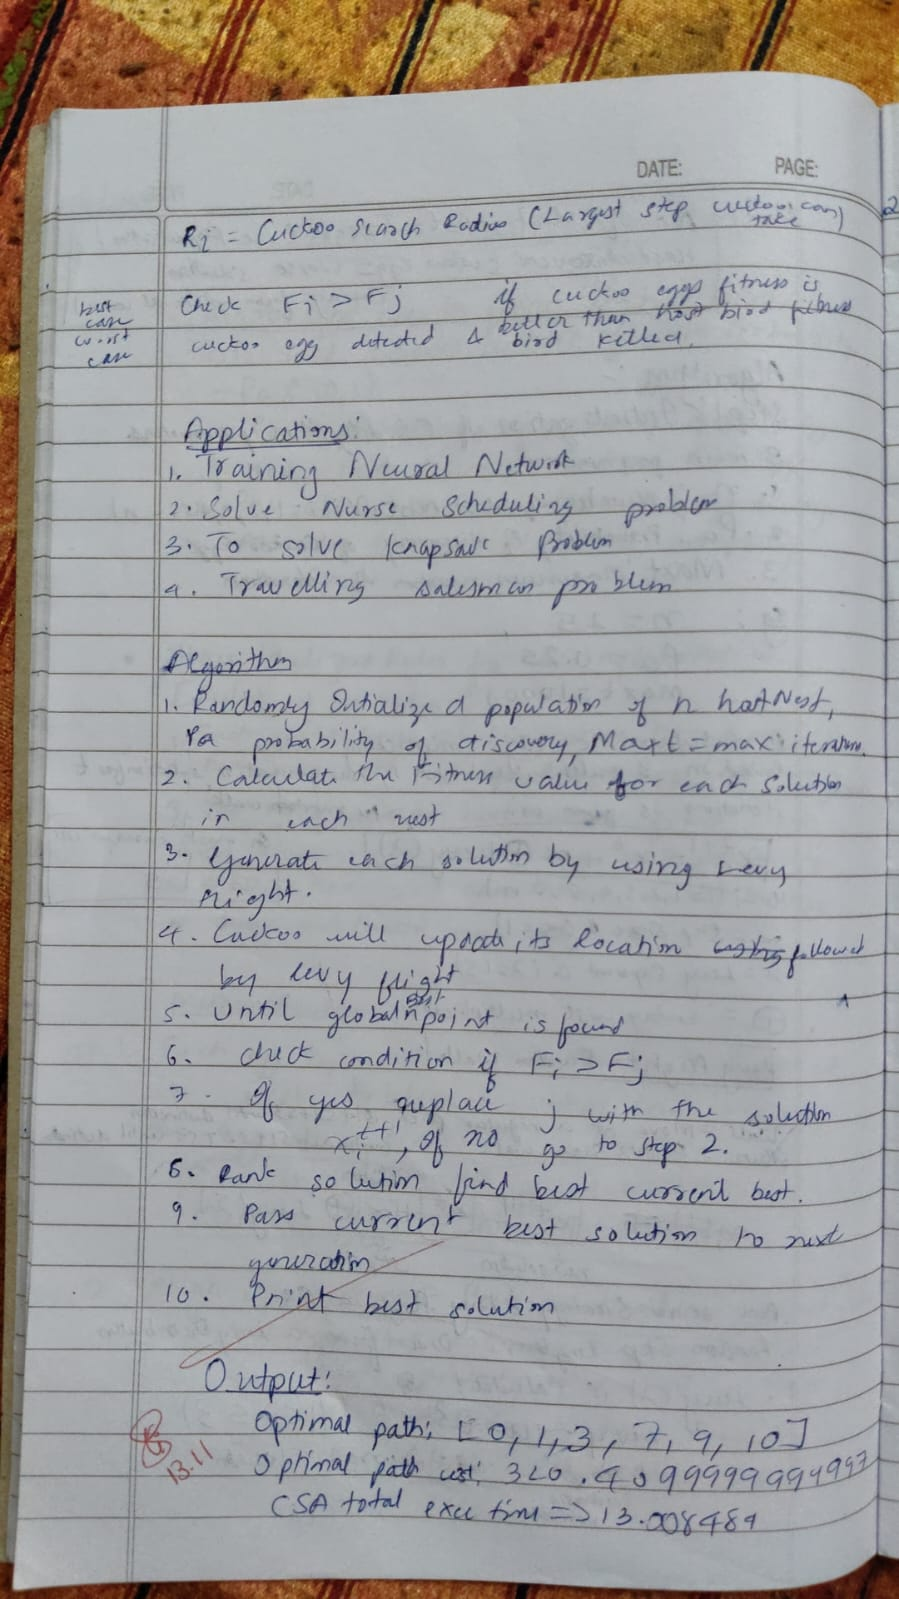 DATE: PAGE:
Ri = Cuckoo Search Radius (Largest step cuckoo can take)
best case
Check Fi > Fj if cuckoo eggs fitness is better than host bird fitness
worst case
cuckoo egg detected & bird killed.
Applications:
1. Training Neural Network
2. Solve Nurse Scheduling problem
3. To solve knapsack Problem
4. Travelling salesman problem
Algorithm
1. Randomly Initialize d population of n host Nest,
Pa probability of discovery, Maxt = max iteration.
2. Calculate the Fitness value for each solution
in each nest
3. Generate each solution by using Levy
flight.
4. Cuckoo will update its location followed
by levy flight
5. Until global best point is found
6. check condition if Fi > Fj
7. If yes replace j with the solution
xi^t+1, If no go to step 2.
8. Rank solution find best current best.
9. Pass current best solution to next
generation
10. Print best solution
Output:
Optimal path: [0, 1, 3, 7, 9, 10]
Optimal path cost:
CSA total exec time => 13.008484
13.11